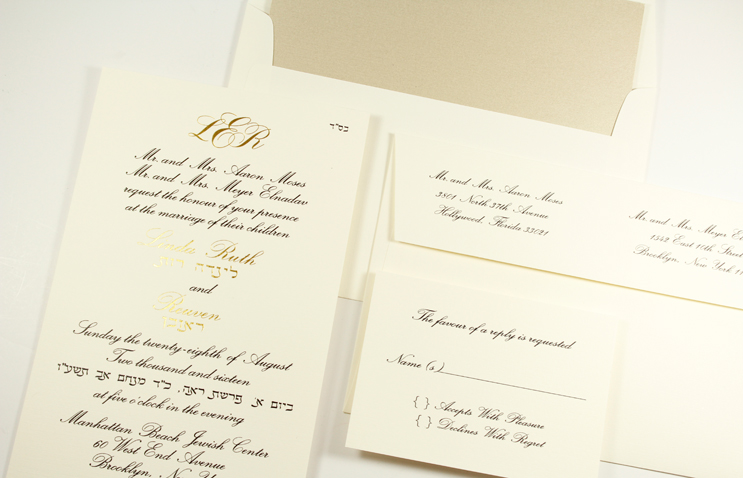 LER
בס"ד
Mr. and Mrs. Aaron Moses
Mr. and Mrs. Meyer Elnadav
request the honour of your presence
at the marriage of their children
Linda Ruth
לינדה רות
and
Reuven
ראובן
Sunday the twenty-eighth of August
Two thousand and sixteen
ביום א', פרשת ראה, כ"ד מנחם אב תשע"ו
at five o'clock in the evening
Manhattan Beach Jewish Center
60 West End Avenue
Brooklyn, New Y
Mr. and Mrs. Aaron Moses
3801 North 37th Avenue
Hollywood, Florida 33021
Mr. and Mrs. Meyer El
1542 East 10th Street
Brooklyn, New York 11
The favour of a reply is requested
Name(s)
{ } Accepts With Pleasure
{ } Declines With Regret